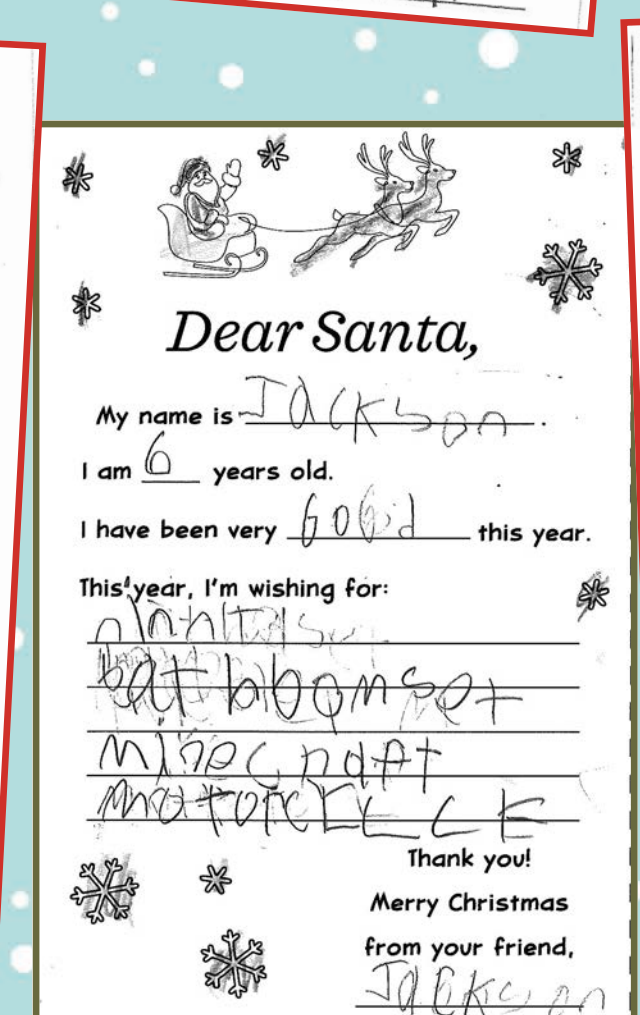 Dear Santa,
My name is Jackson.
I am 6 years old.
I have been very Good this year.
This year, I'm wishing for:
set
minecraft
Thank you!
Merry Christmas
from your friend,
Jackson